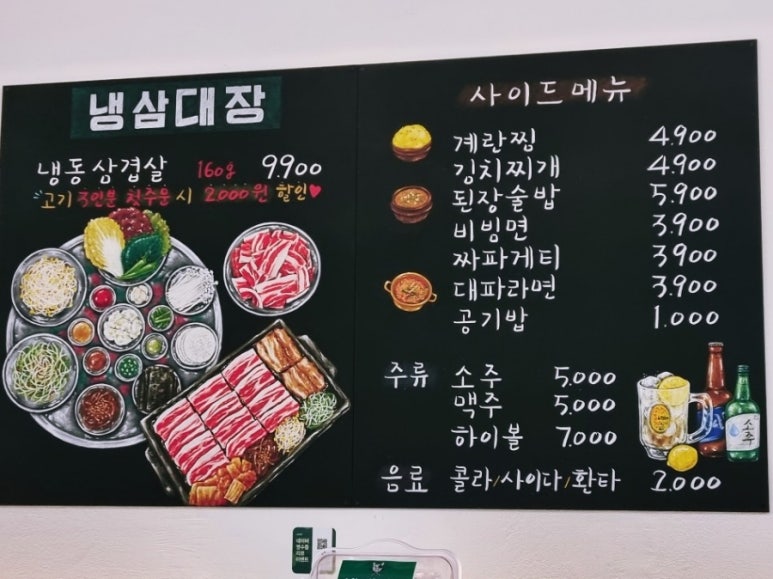 냉삼대장
냉동삼겹살 160g 9.900
고기 3인분 첫주문 시 2000원 할인♥
사이드메뉴
계란찜 4.900
김치찌개 4.900
된장술밥 5.900
비빔면 3.900
짜파게티 3.900
대파라면 3.900
공기밥 1.000
주류 소주 5.000
맥주 5.000
하이볼 7.000
음료 콜라/사이다/환타 2.000
소주
네이버
영수증
리뷰
이벤트